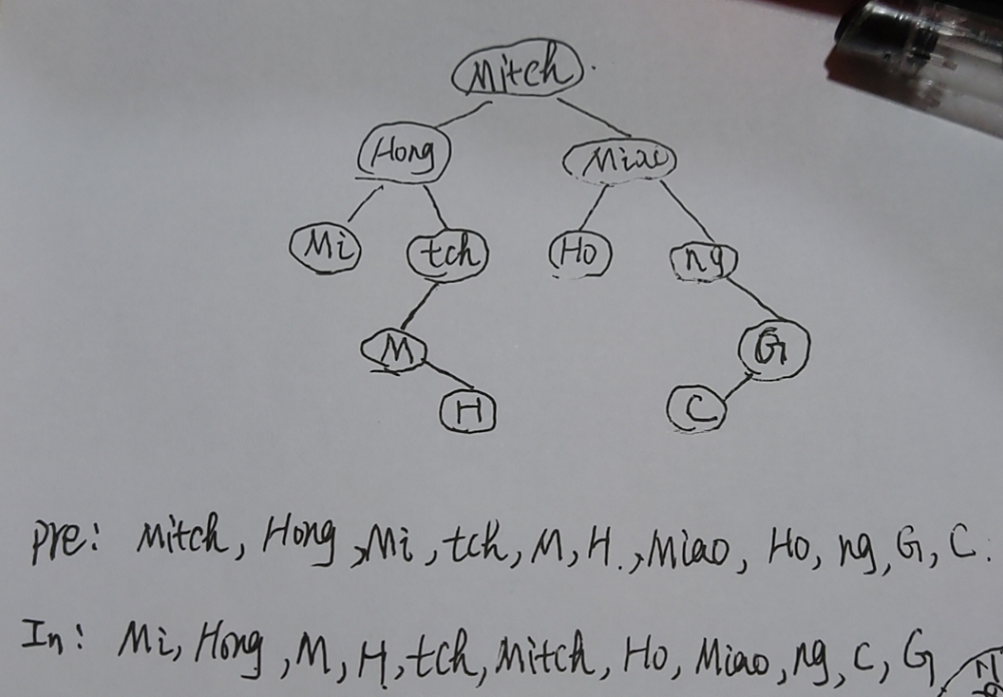 Mitch
Hong Miao
Mi tch Ho ng
M G
H C
pre: Mitch, Hong, Mi, tch, M, H., Miao, Ho, ng, G, C.
In: Mi, Hong, M, H, tch, Mitch, Ho, Miao, ng, C, G